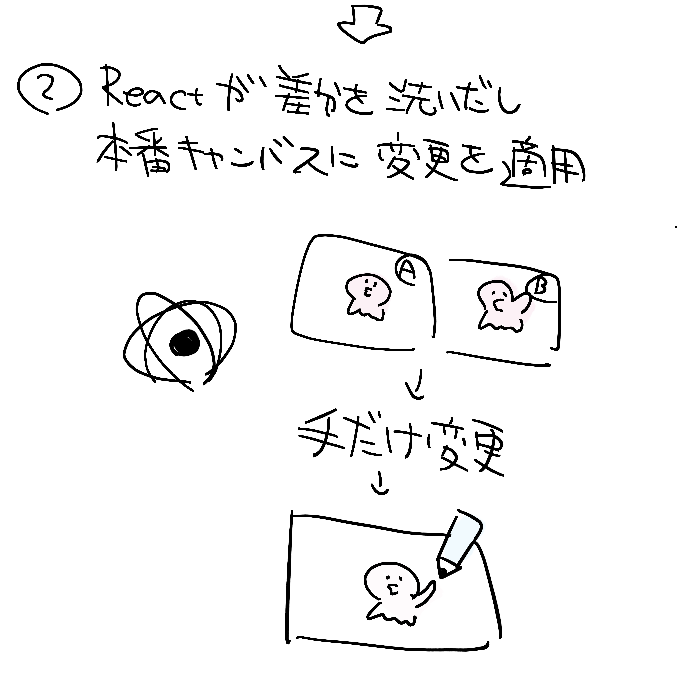 ② Reactが差分を洗いだし
本番キャンバスに変更を適用
Ⓐ
Ⓑ
手だけ変更